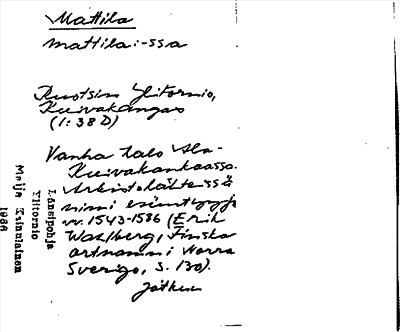 Mattila
Mattila: -ssa
Ruotsin Ylitornio,
Kuivakangas
(1:38 D)
Vanha talo Ala-
Kuivakankaassa.
Arkistolähteissä
nimi esiintyyjo
vv. 1543-1586 (Erik
Wahlberg, Finska
ortnamn i Norra
Sverige, s. 130).
Jatkuu
Länsipohja
Ylitornio
Maija Kainulainen
1986